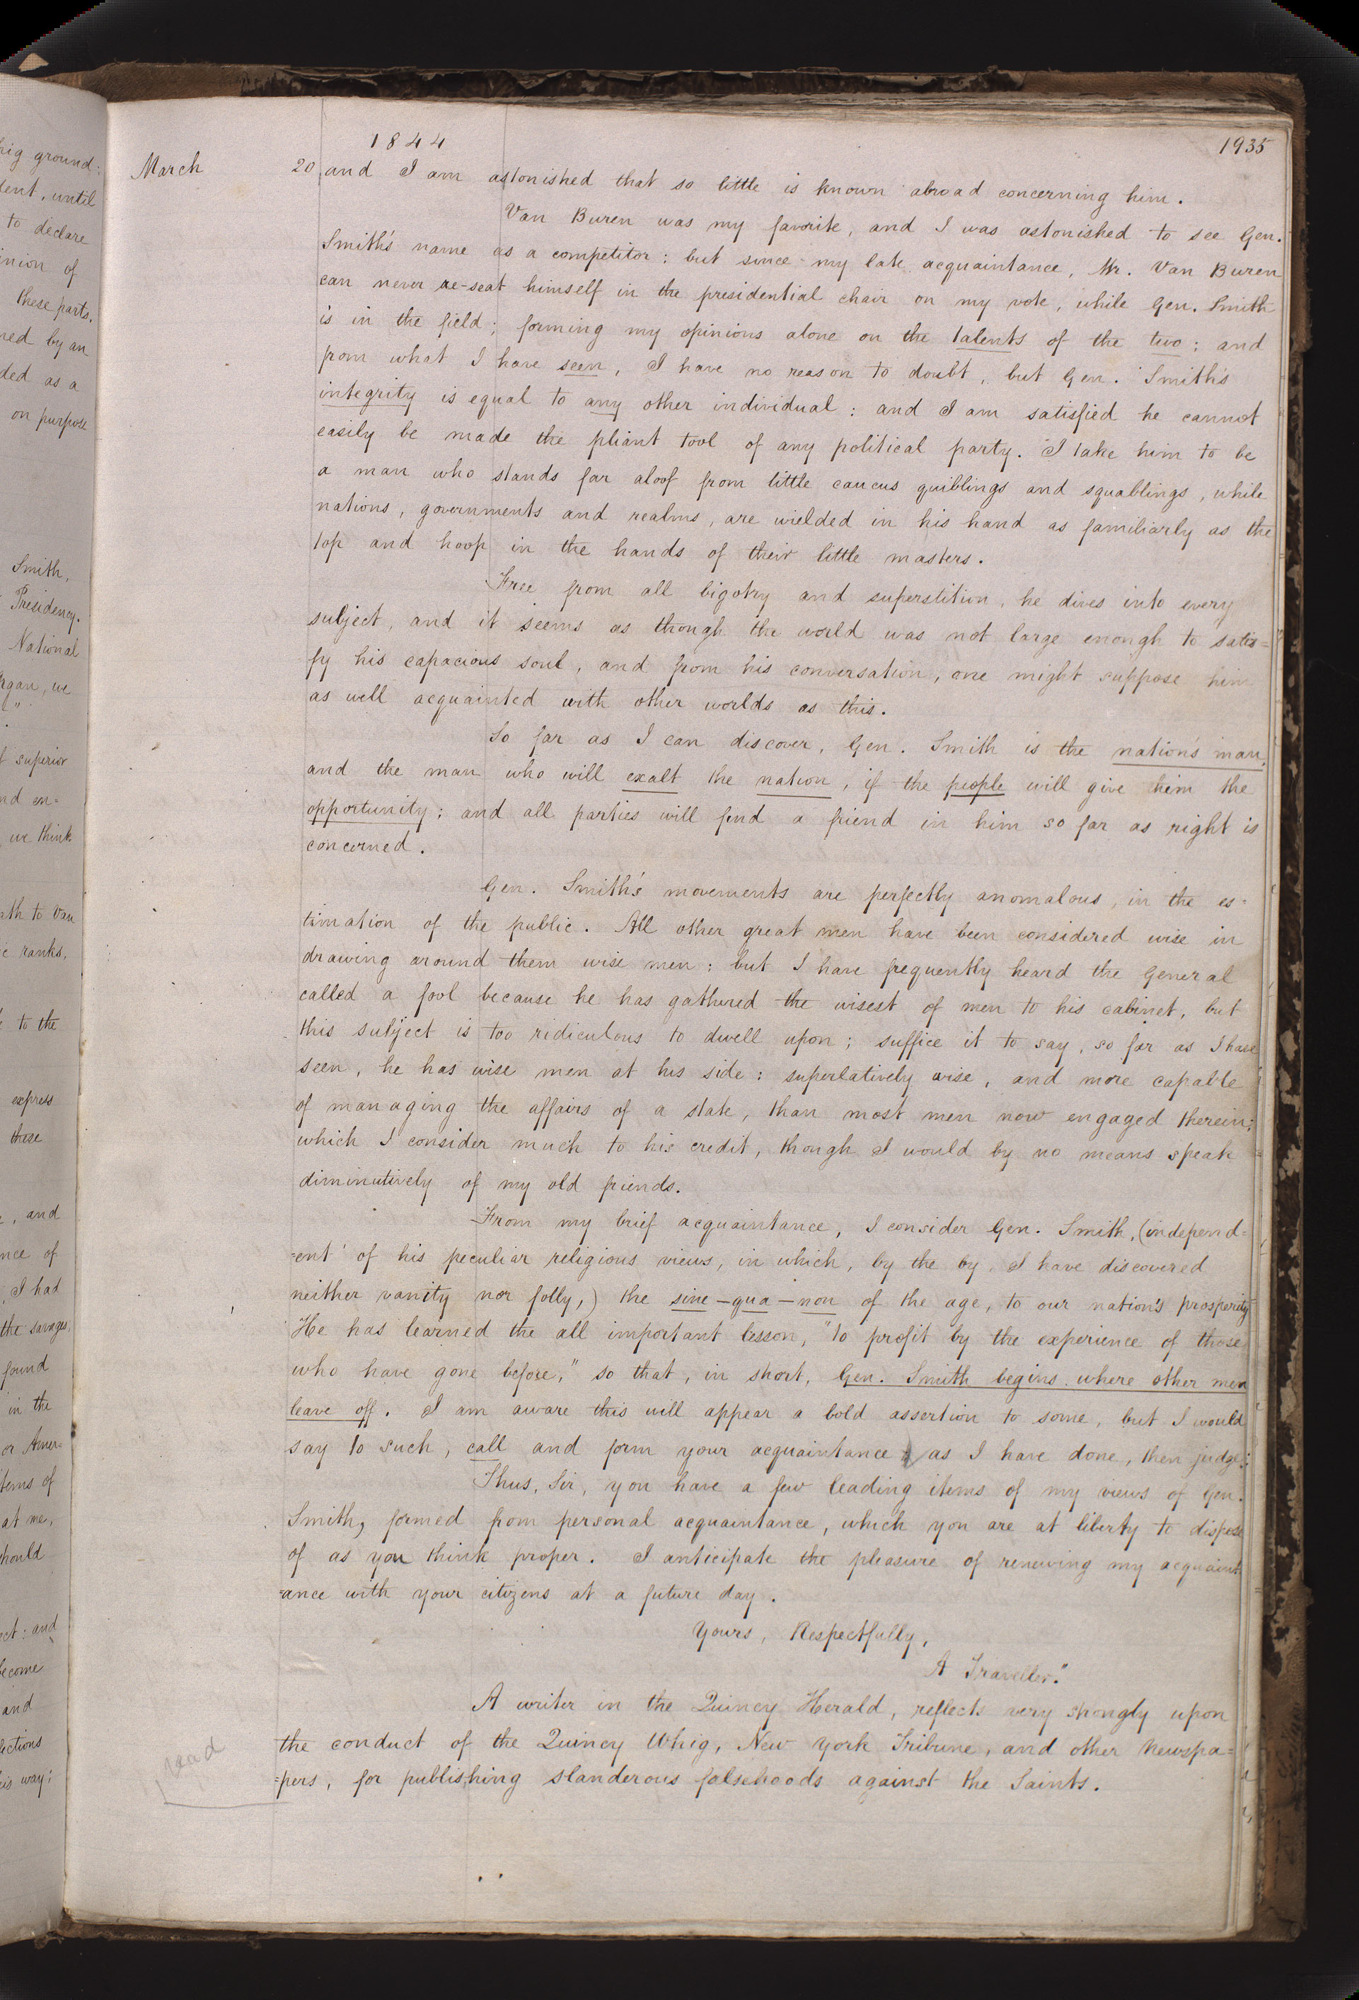 1844
1935
March 20 and I am astonished that so little is known abroad concerning him.
Van Buren was my favorite, and I was astonished to see Gen.
Smith's name as a competitor: but since my late acquaintance, Mr. Van Buren
can never re-seat himself in the presidential chair on my vote, while Gen. Smith
is in the field; forming my opinions alone on the talents of the two: and
from what I have seen, I have no reason to doubt, but Gen. Smith's
integrity is equal to any other individual: and I am satisfied he cannot
easily be made the pliant tool of any political party. I take him to be
a man who stands far aloof from little caucus quiblings and squablings, while
nations, governments and realms, are wielded in his hand as familiarly as the
top and hoop in the hands of their little masters.
Free from all bigotry and superstition, he dives into every
subject, and it seems as though the world was not large enough to satis=
fy his capacious soul, and from his conversation, one might suppose him
as well acquainted with other worlds as this.
So far as I can discover, Gen. Smith is the nation's man,
and the man who will exalt the nation, if the people will give him the
opportunity: and all parties will find a friend in him so far as right is
concerned.
Gen. Smith's movements are perfectly anomalous, in the es=
timation of the public. All other great men have been considered wise in
drawing around them wise men: but I have frequently heard the General
called a fool because he has gathered the wisest of men to his cabinet, but
this subject is too ridiculous to dwell upon; suffice it to say, so far as I have
seen, he has wise men at his side: superlatively wise, and more capable
of managing the affairs of a state, than most men now engaged therein;
which I consider much to his credit, though I would by no means speak
diminutively of my old friends.
From my brief acquaintance, I consider Gen. Smith, (independ=
=ent of his peculiar religious views, in which, by the by, I have discovered
neither vanity nor folly,) the sine-qua-non of the age, to our nation's prosperity
He has learned the all important lesson, "to profit by the experience of those
who have gone before," so that, in short, Gen. Smith begins where other men
leave off. I am aware this will appear a bold assertion to some, but I would
say to such, call and form your acquaintance as I have done, then judge:
Thus, Sir, you have a few leading items of my views of Gen.
Smith, formed from personal acquaintance, which you are at liberty to dispose
of as you think proper. I anticipate the pleasure of renewing my acquaint
=ance with your citizens at a future day.
Yours, Respectfully,
A Traveller."
A writer in the Quincy Herald, reflects very strongly upon
the conduct of the Quincy Whig, New York Tribune, and other Newspa=
=pers, for publishing slanderous falsehoods against the Saints.
read